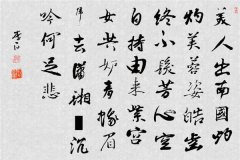 美人出南國灼
灼芙蓉姿皓齒
终不發芳心空
自持由來紫宫
女共妒青蛾眉
歸去瀟湘■沉
吟何足悲
李白